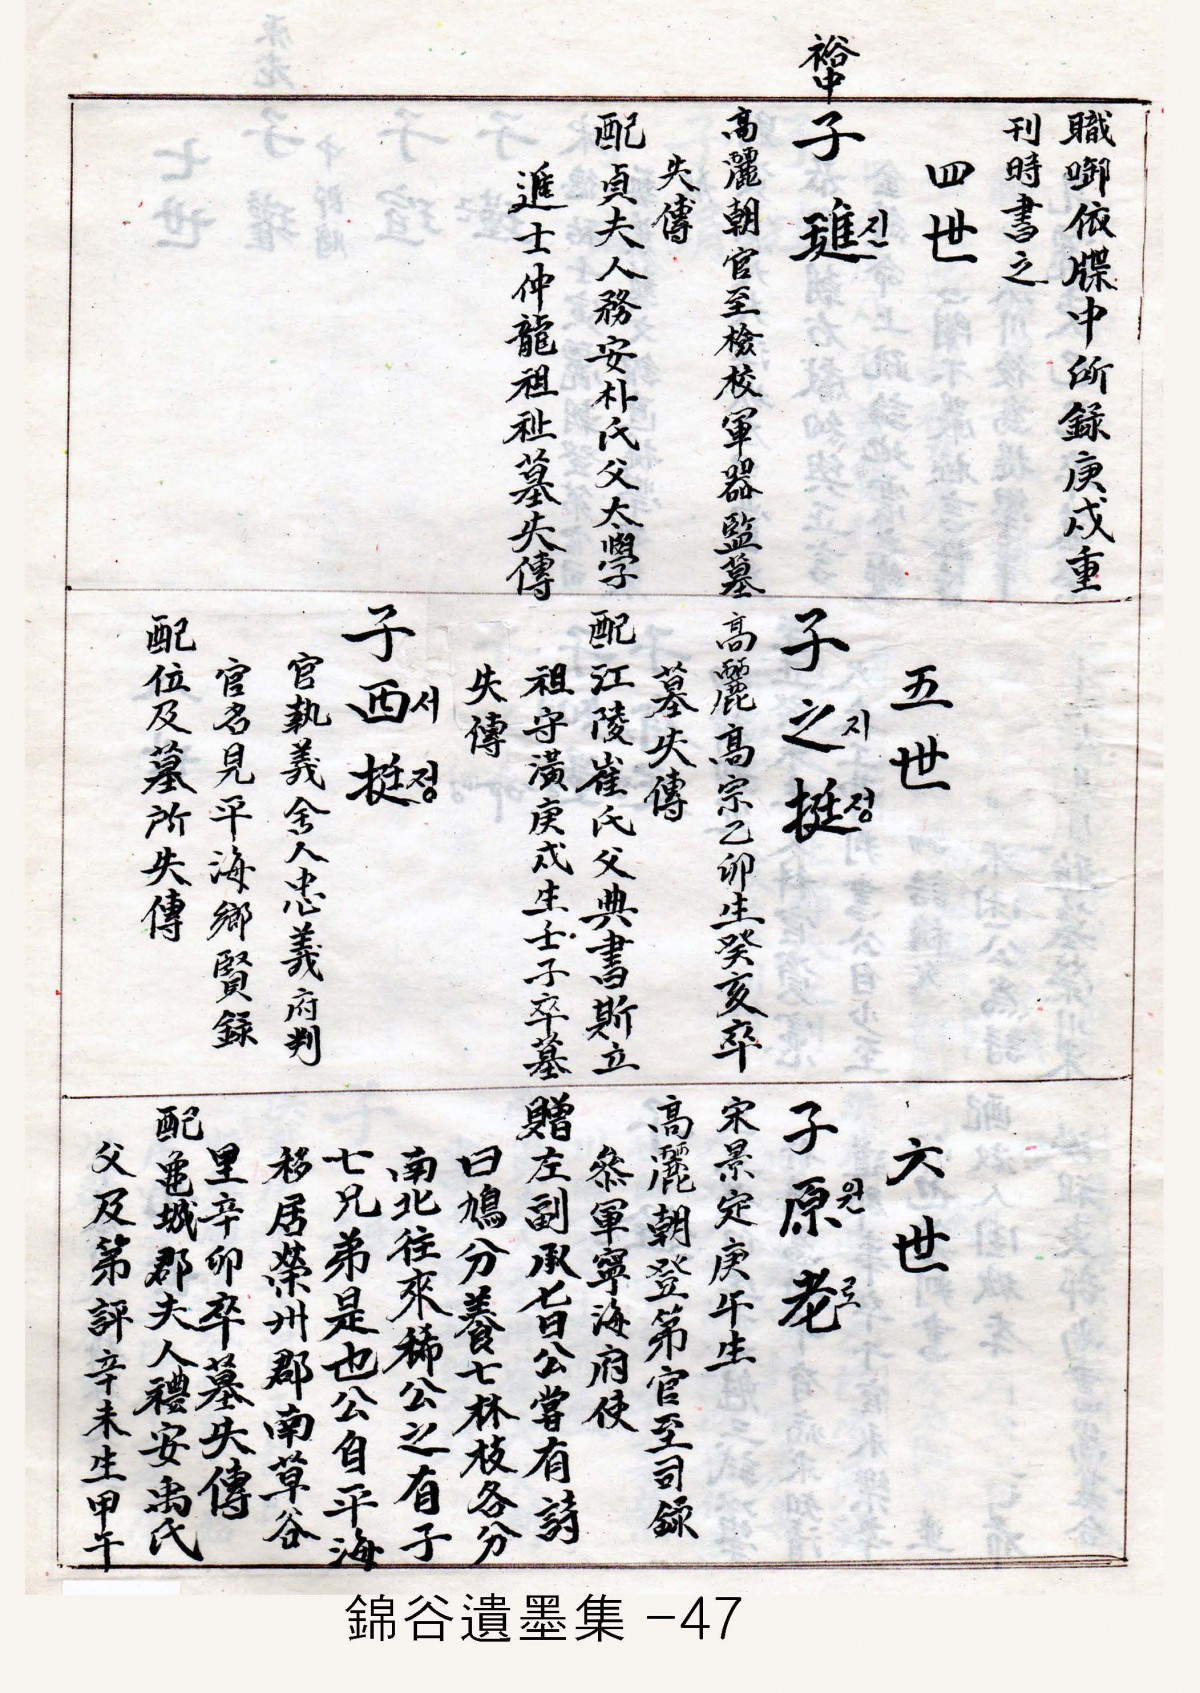 裕中
職啣依牒中所錄庚戌重
刊時書之
四世
子璡진
高麗朝官至檢校軍器監墓
失傳
配貞夫人務安朴氏父太學
進士仲龍祖祉墓失傳
五世
子之지挺정
高麗高宗乙卯生癸亥卒
墓失傳
配江陵崔氏父典書斯立
祖守潢庚戌生壬子卒墓
失傳
子西서挺정
官執義舍人忠義府判
官名見平海鄉賢錄
配位及墓所失傳
六世
子原원老로
宋景定庚午生
高麗朝登第官至司錄
叅軍寧海府使
贈左副承旨公嘗有詩
曰鳩分養七林枝各分
南北往來稀公之有子
七兄弟是也公自平海
移居榮州郡南草谷
里辛卯卒墓失傳
配龜城郡夫人禮安禹氏
父及第評辛未生甲午
錦谷遺墨集 -47